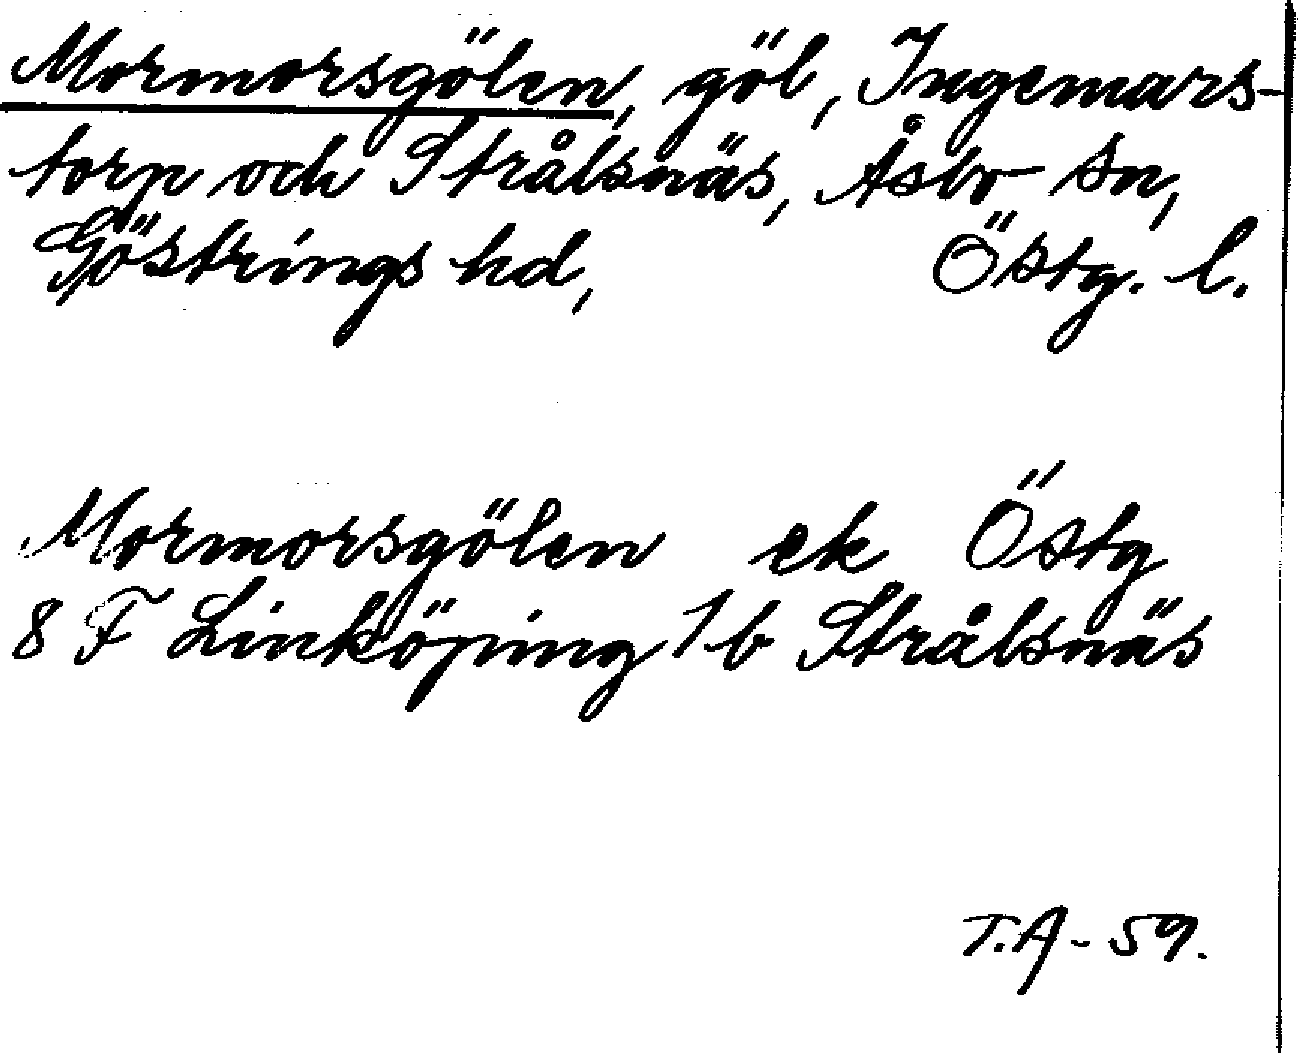 Mormorsgölen, göl, Ingemars-
torp och Strålsnäs, Åsbo sn,
Göstrings hd, Östg. l.
Mormorsgölen ek Östg
8 F Linköping 1 b Strålsnäs
T.A - 59.